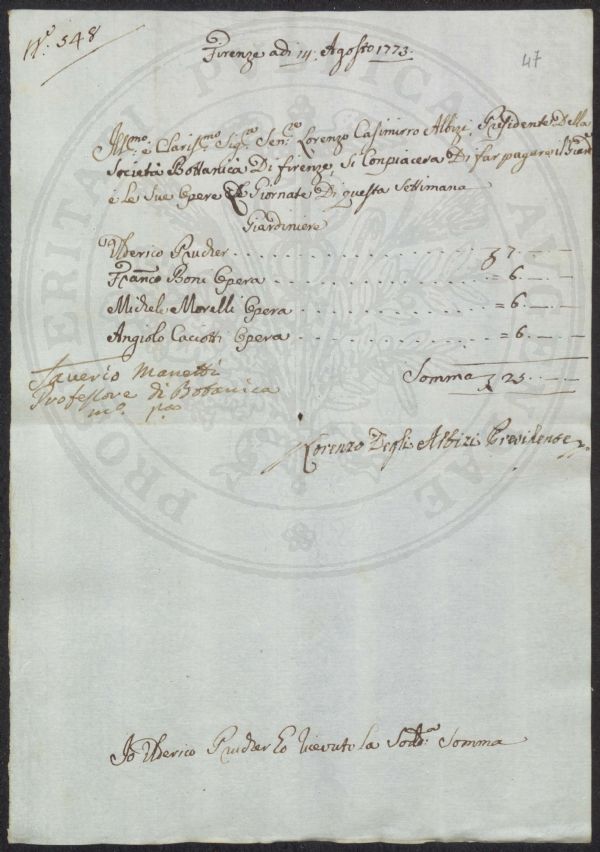 N.º 548
Firenze adi 14. Agosto 1773.
47
Ill.mo e Claris.mo Sig.re Sen.re Lorenzo Casimirro Albizi, Presidente Della
Società Bottanica Di firenze, Si Conpiacera Di far pagare il Giard.re
e le Sue Opere Giornate Di questa Settimana
Giardiniere
Ulderico Prucher . . . . . 7 . —
Fran.co Boni Opera . . . . . = 6 . —
Michele Morelli Opera . . . . . = 6 . —
Angiolo Caciotti Opera . . . . . = 6 . —
Somma 25 . —
Saverio Manetti
Professore di Botanica
m.o p.a
Lorenzo Degli Albizi Presidente
Io Ulderico Prucher ho ricevuto la Sodd.a Somma
PROSPERITATI PUBLICAE AUGENDAE